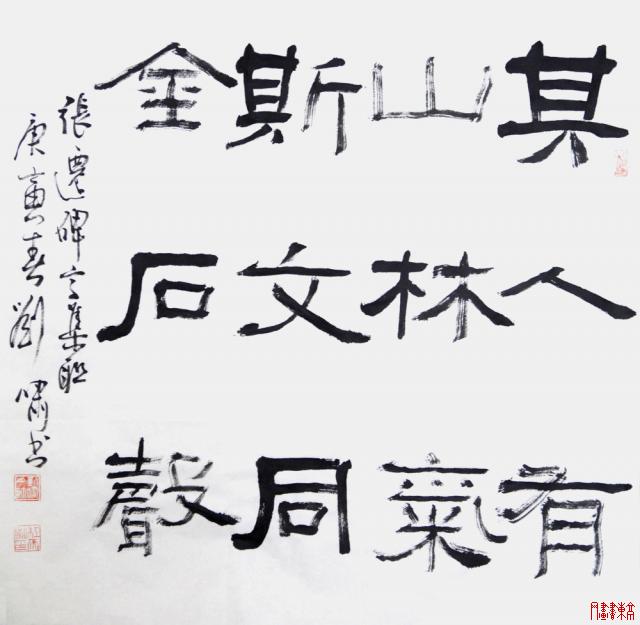 其人有
山林氣
斯文同
金石聲
張遷碑字集聯
庚寅春劉嘯書